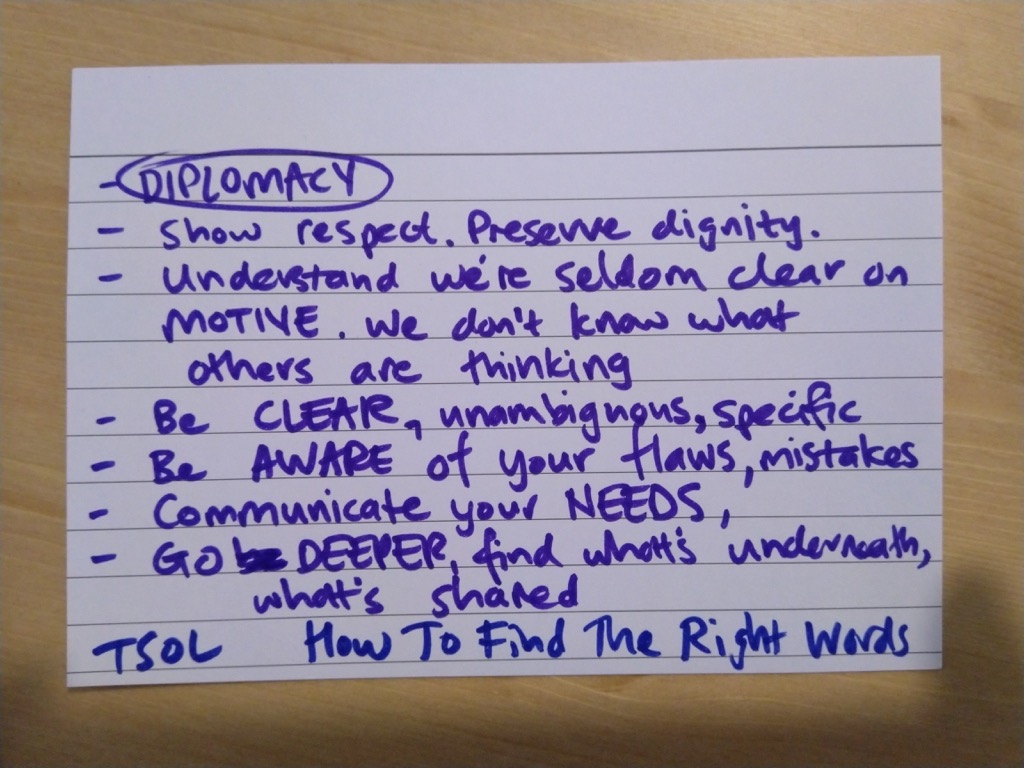 - DIPLOMACY
- Show respect. Preserve dignity.
- Understand we're seldom clear on
MOTIVE. We don't know what
others are thinking
- Be CLEAR, unambiguous, specific
- Be AWARE of your flaws, mistakes
- Communicate your NEEDS,
- GO DEEPER, find what's underneath,
what's shared
TSOL How To Find The Right Words